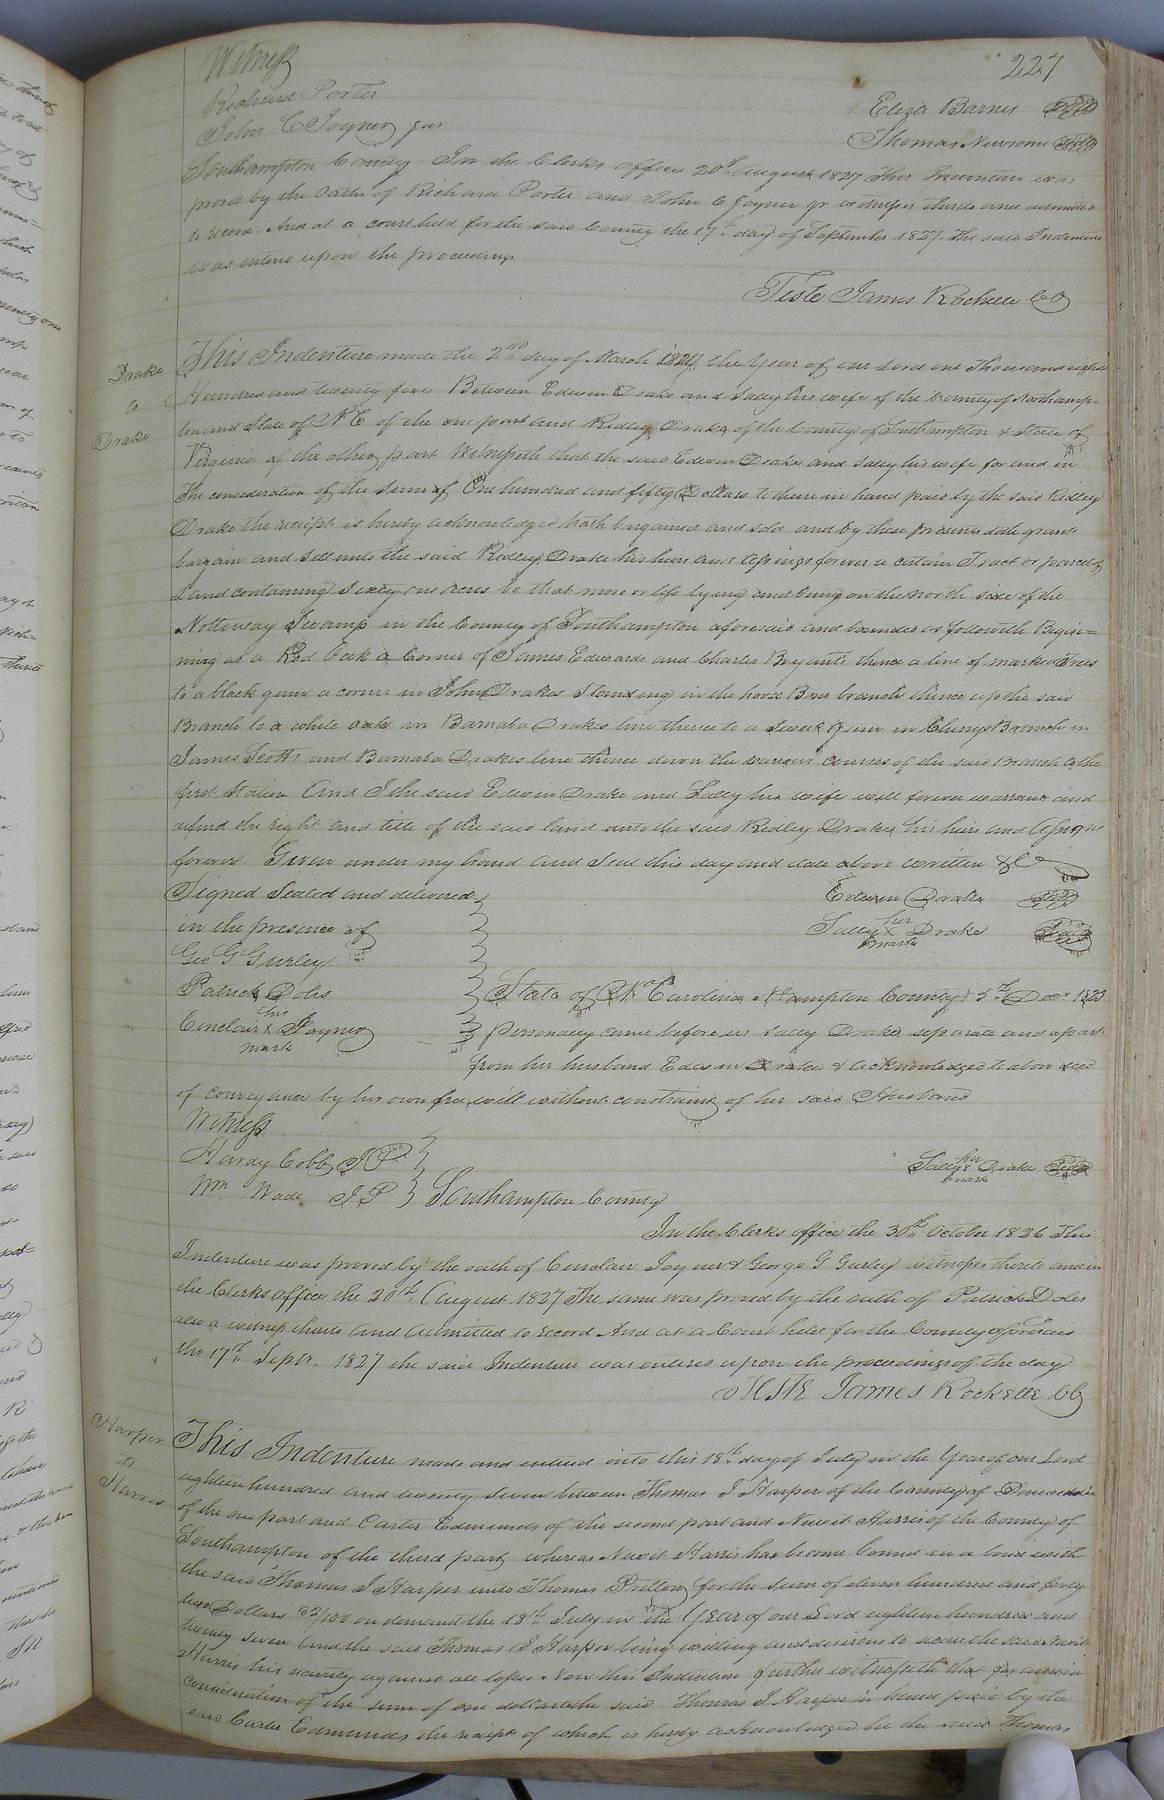 227
Witness
Richard Porter Eliza Barnes Seal
John C Joyner Jnr Thomas Newsome Seal
Southampton County In the Clerks office 20th August 1827 This Indenture was
proved by the oath of Richard Porter and John C Joyner Jr witnesses thereto and admitted
to record And at a court held for the said County the 17th day of September 1827 the said Indenture
was entered upon the proceedings
Teste James Rochelle CC
Drake
to
Drake
This Indenture made the 2nd day of March the Year of our Lord one Thousand eight
Hundred and twenty five Between Edwin Drake and Sally his wife of the County of Northamp-
ton and State of N C of the one part and Ridley Drake of the County of Southampton & State of
Virginia of the other part Witnesseth that the said Edwin Drake and Sally his wife for and in
the consideration of the sum of One hundred and fifty Dollars to them in hand paid by the said Ridley
Drake the receipt is hereby acknowledged hath bargained and sold and by these presents doth grant
bargain and sell unto the said Ridley Drake his heirs and assigns forever a certain Tract or parcel of
Land containing Sixty one acres be that more or less lying and being on the north side of the
Nottoway Swamp in the County of Southampton aforesaid and bounded as followeth Begin=
ning at a Red Oak a Corner of James Edwards and Charles Bryants thence a line of marked Trees
to a black gum a corner in John Drakes Standing in the horse Bone branch thence up the said
Branch to a white oak in Barnaba Drakes line thence to a Sweet Gum in Branch in
James Scotts and Barnaba Drakes line thence down the various courses of the said Branch to the
first Station And I the said Edwin Drake and Sally his wife will forever warrant and
defend the right and title of the said land unto the said Ridley Drake his heirs and Assigns
forever Given under my hand and Seal this day and date above written &C
Signed Sealed and delivered Edwin Drake Seal
in the presence of Sally her x mark Drake Seal
Geo G Gurley
Patrick Doles State of No Carolina N hampton County 5th Decr
Cinclair his x mark Joyner Personally came before us Sally Drake separate and apart
from her husband Edwin Drake & acknowledged to above deed
of conveyance by her own free will without constraint of her said Husband
Witness
Hardy Cobb J P Sally her x mark Drake Seal
Wm Wade J P Southampton County
In the Clerks office the 30th October 1826 This
Indenture was proved by the oath of Cinclair Joyner & George G Gurley witnesses thereto and in
the Clerks office the 20th August 1827 The same was proved by the oath of Patrick Doles
also a witness thereto and admitted to record And at a Court held for the County aforesaid
the 17th Septr. 1827 the said Indenture was entered upon the proceedings of the day
Teste James Rochelle CC
Harper
to
Harris
This Indenture made and entered into this 18th day of July in the Year of our Lord
eighteen hundred and twenty Seven between Thomas J Harper of the County of Dinwiddie
of the one part and Carter Edmunds of the second part and Newit Harris of the County of
Southampton of the third part, whereas Newit Harris has become bound in a bond with
the said Thomas J Harper unto Thomas Pretlow for the sum of eleven hundred and forty
two Dollars 32/100 on demand the 18th July in the Year of our Lord eighteen hundred and
twenty seven And the said Thomas J Harper being willing and desirous to secure the said Newit
Harris his security against all losses Now this Indenture further witnesseth that for and in
consideration of the sum of one dollar to the said Thomas J Harper in hand paid by the
said Carter Edmunds the receipt of which is hereby acknowledged he the said Thomas